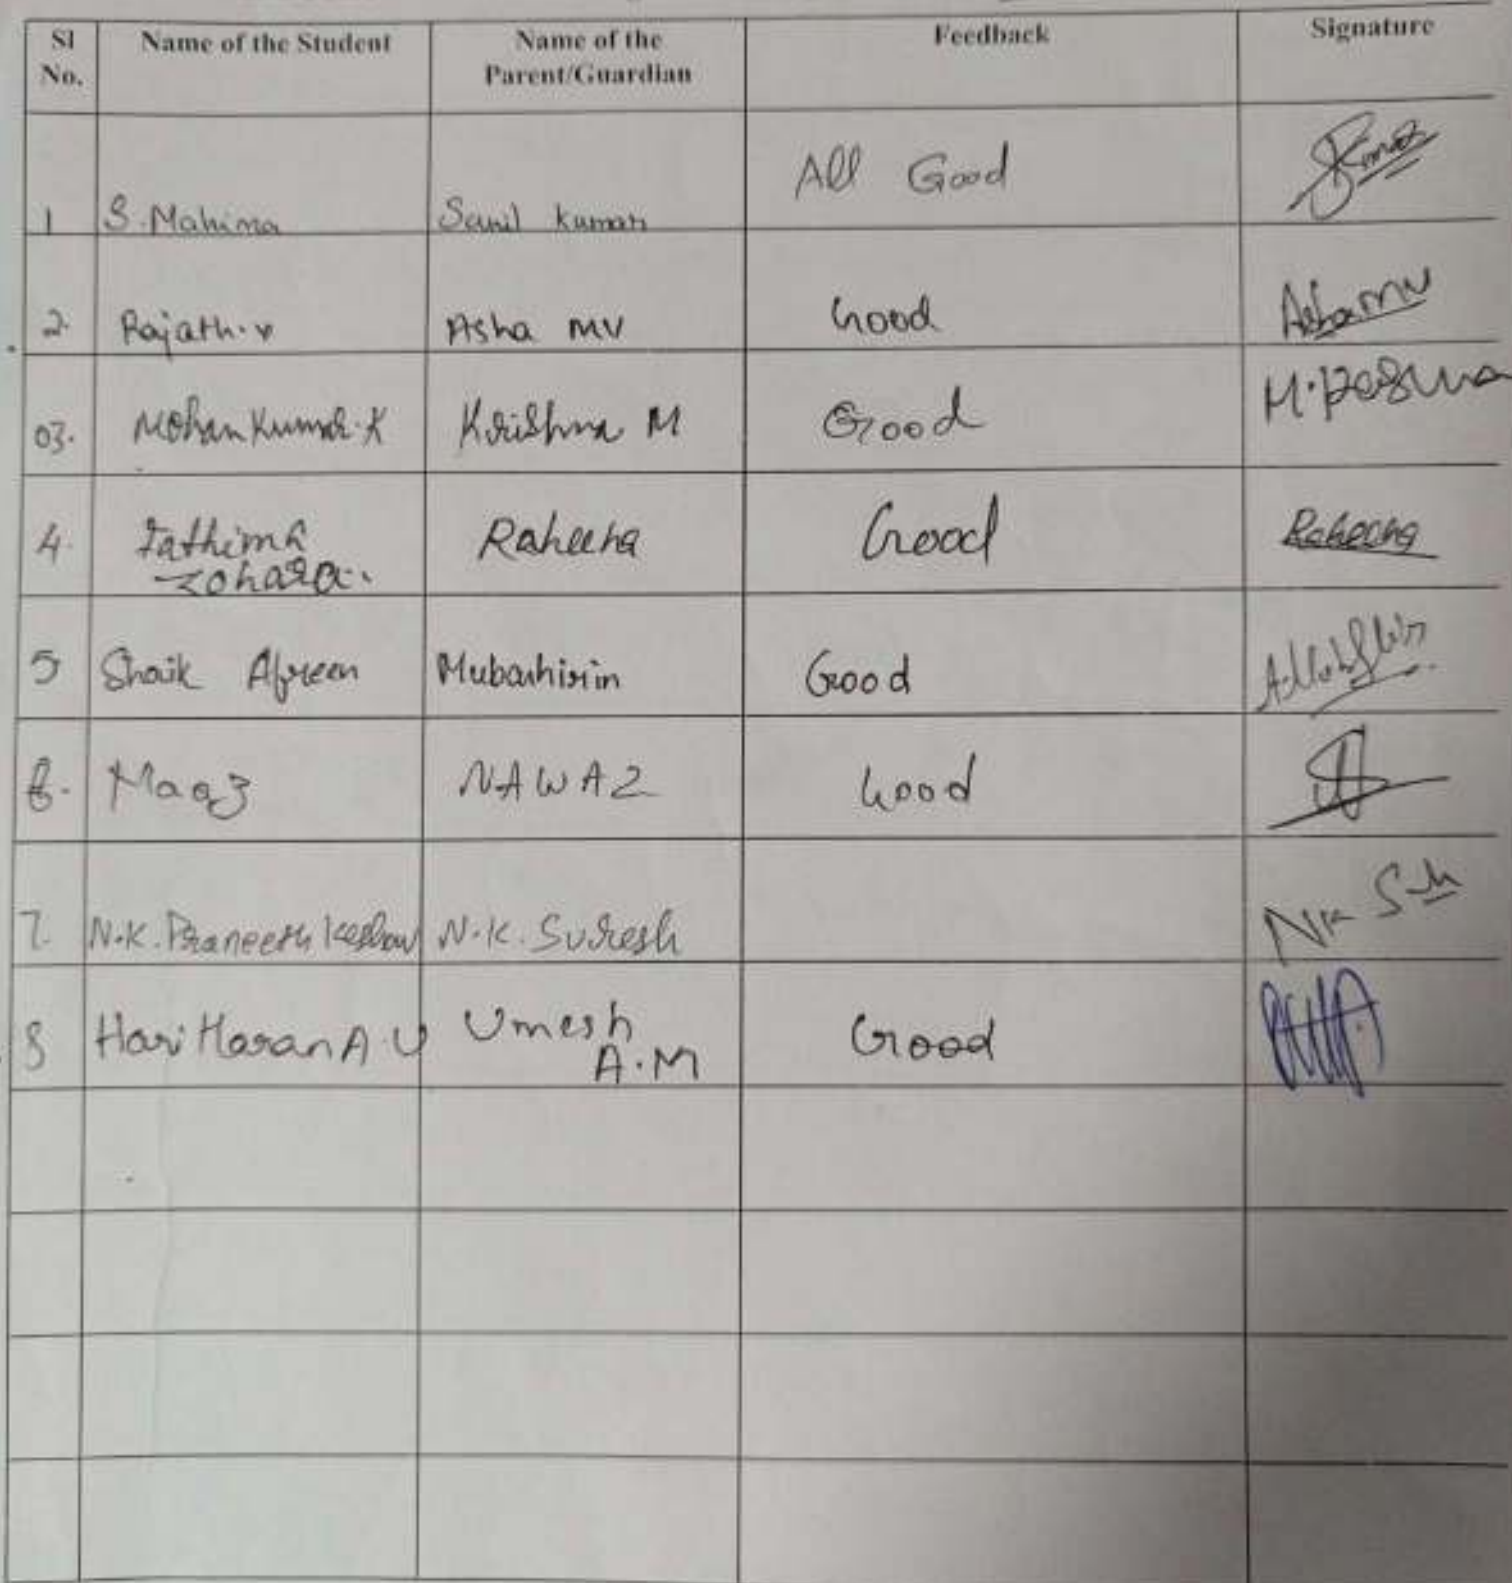 Sl No. Name of the Student Name of the Parent/Guardian Feedback Signature
1 S. Mahima Sunil Kumar All Good
2. Rajath.v Asha MV Good Asha mv
03. Mohan Kumar.K Krishna M Good
4. Fathima Zohara. Raheena Good Raheena
5 Shaik Afreen Mubashirin Good
6. Maaz NAWAZ Good
7. N.K. Praneeth Keshav N.K. Suresh
8 Hari Haran A.U Umesh A.M Good